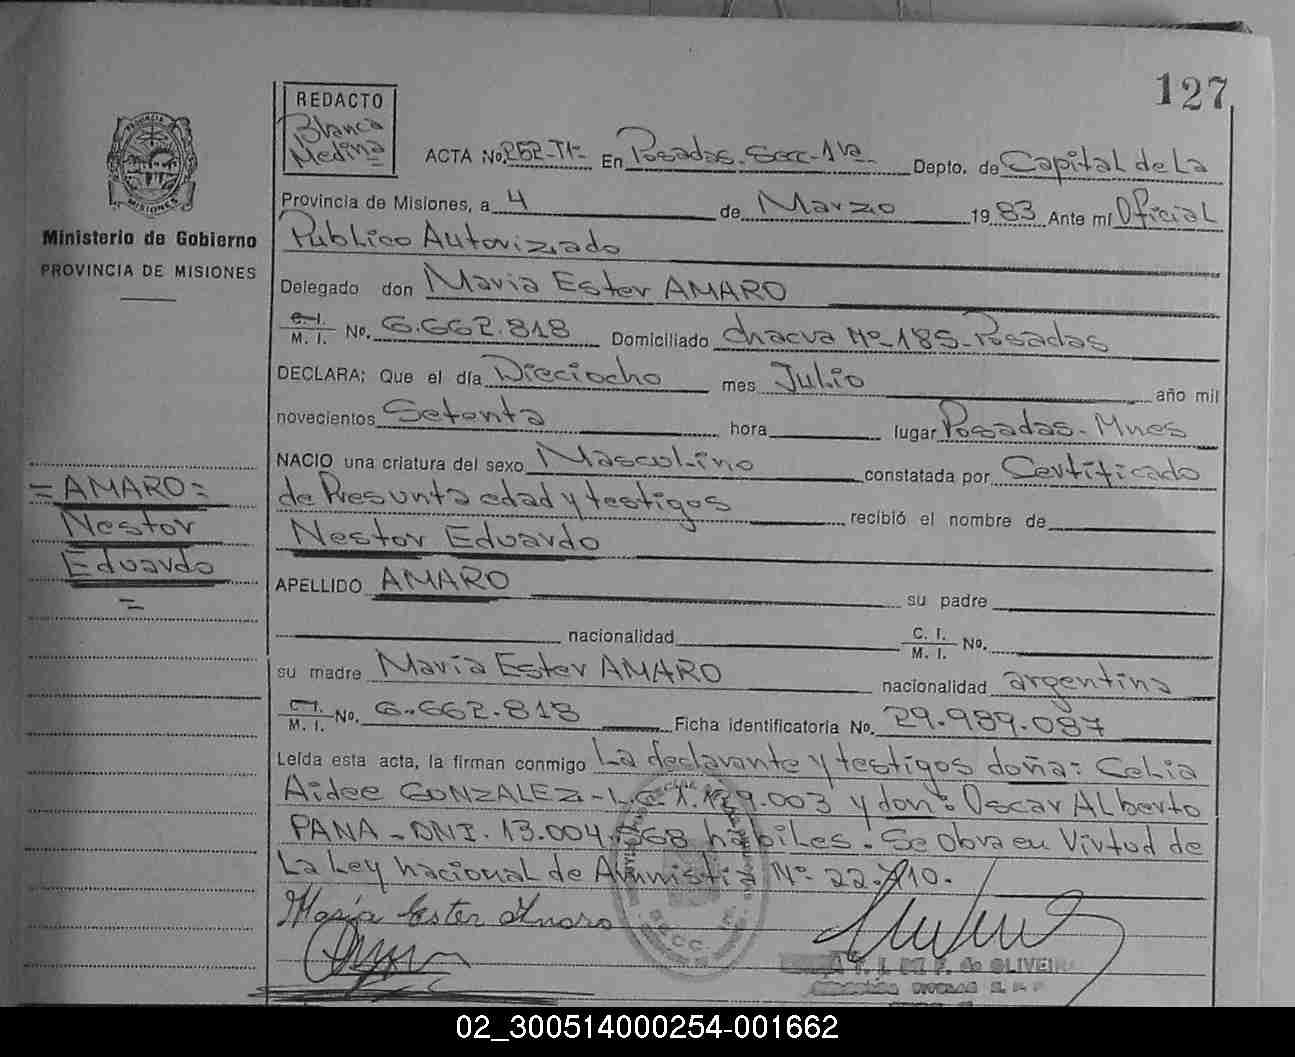 127
REDACTO
Blanca
Medina
ACTA No. 252-T1- En Posadas-Secc-1ra- Depto. de Capital de La
Provincia de Misiones, a 4 de Marzo 1983 Ante mí Oficial
Publico Autorizado
Ministerio de Gobierno
PROVINCIA DE MISIONES
Delegado don Maria Ester AMARO
C. I. / M. I. No. 6.662.818 Domiciliado chacra Nº 185-Posadas
DECLARA: Que el día Dieciocho mes Julio año mil
novecientos Setenta hora lugar Posadas-Mnes
NACIO una criatura del sexo Masculino constatada por Certificado
de Presunta edad y testigos recibió el nombre de
Nestor Eduardo
= AMARO =
Nestor
Eduardo
=
APELLIDO AMARO su padre
nacionalidad C. I. / M. I. No.
su madre Maria Ester AMARO nacionalidad argentina
C. I. / M. I. No. 6.662.818 Ficha identificatoria No. 29.989.087
Leída esta acta, la firman conmigo La declarante y testigos doña: Celia
Aidee GONZALEZ-L.C. 9.003 y don: Oscar ALberto
PANA-DNI. 13.004. 68 hábiles. Se Obra en Virtud de
La Ley nacional de Amnistia Nº 22. 10.
María Ester Amaro
DE OLIVEIRA
02_300514000254-001662